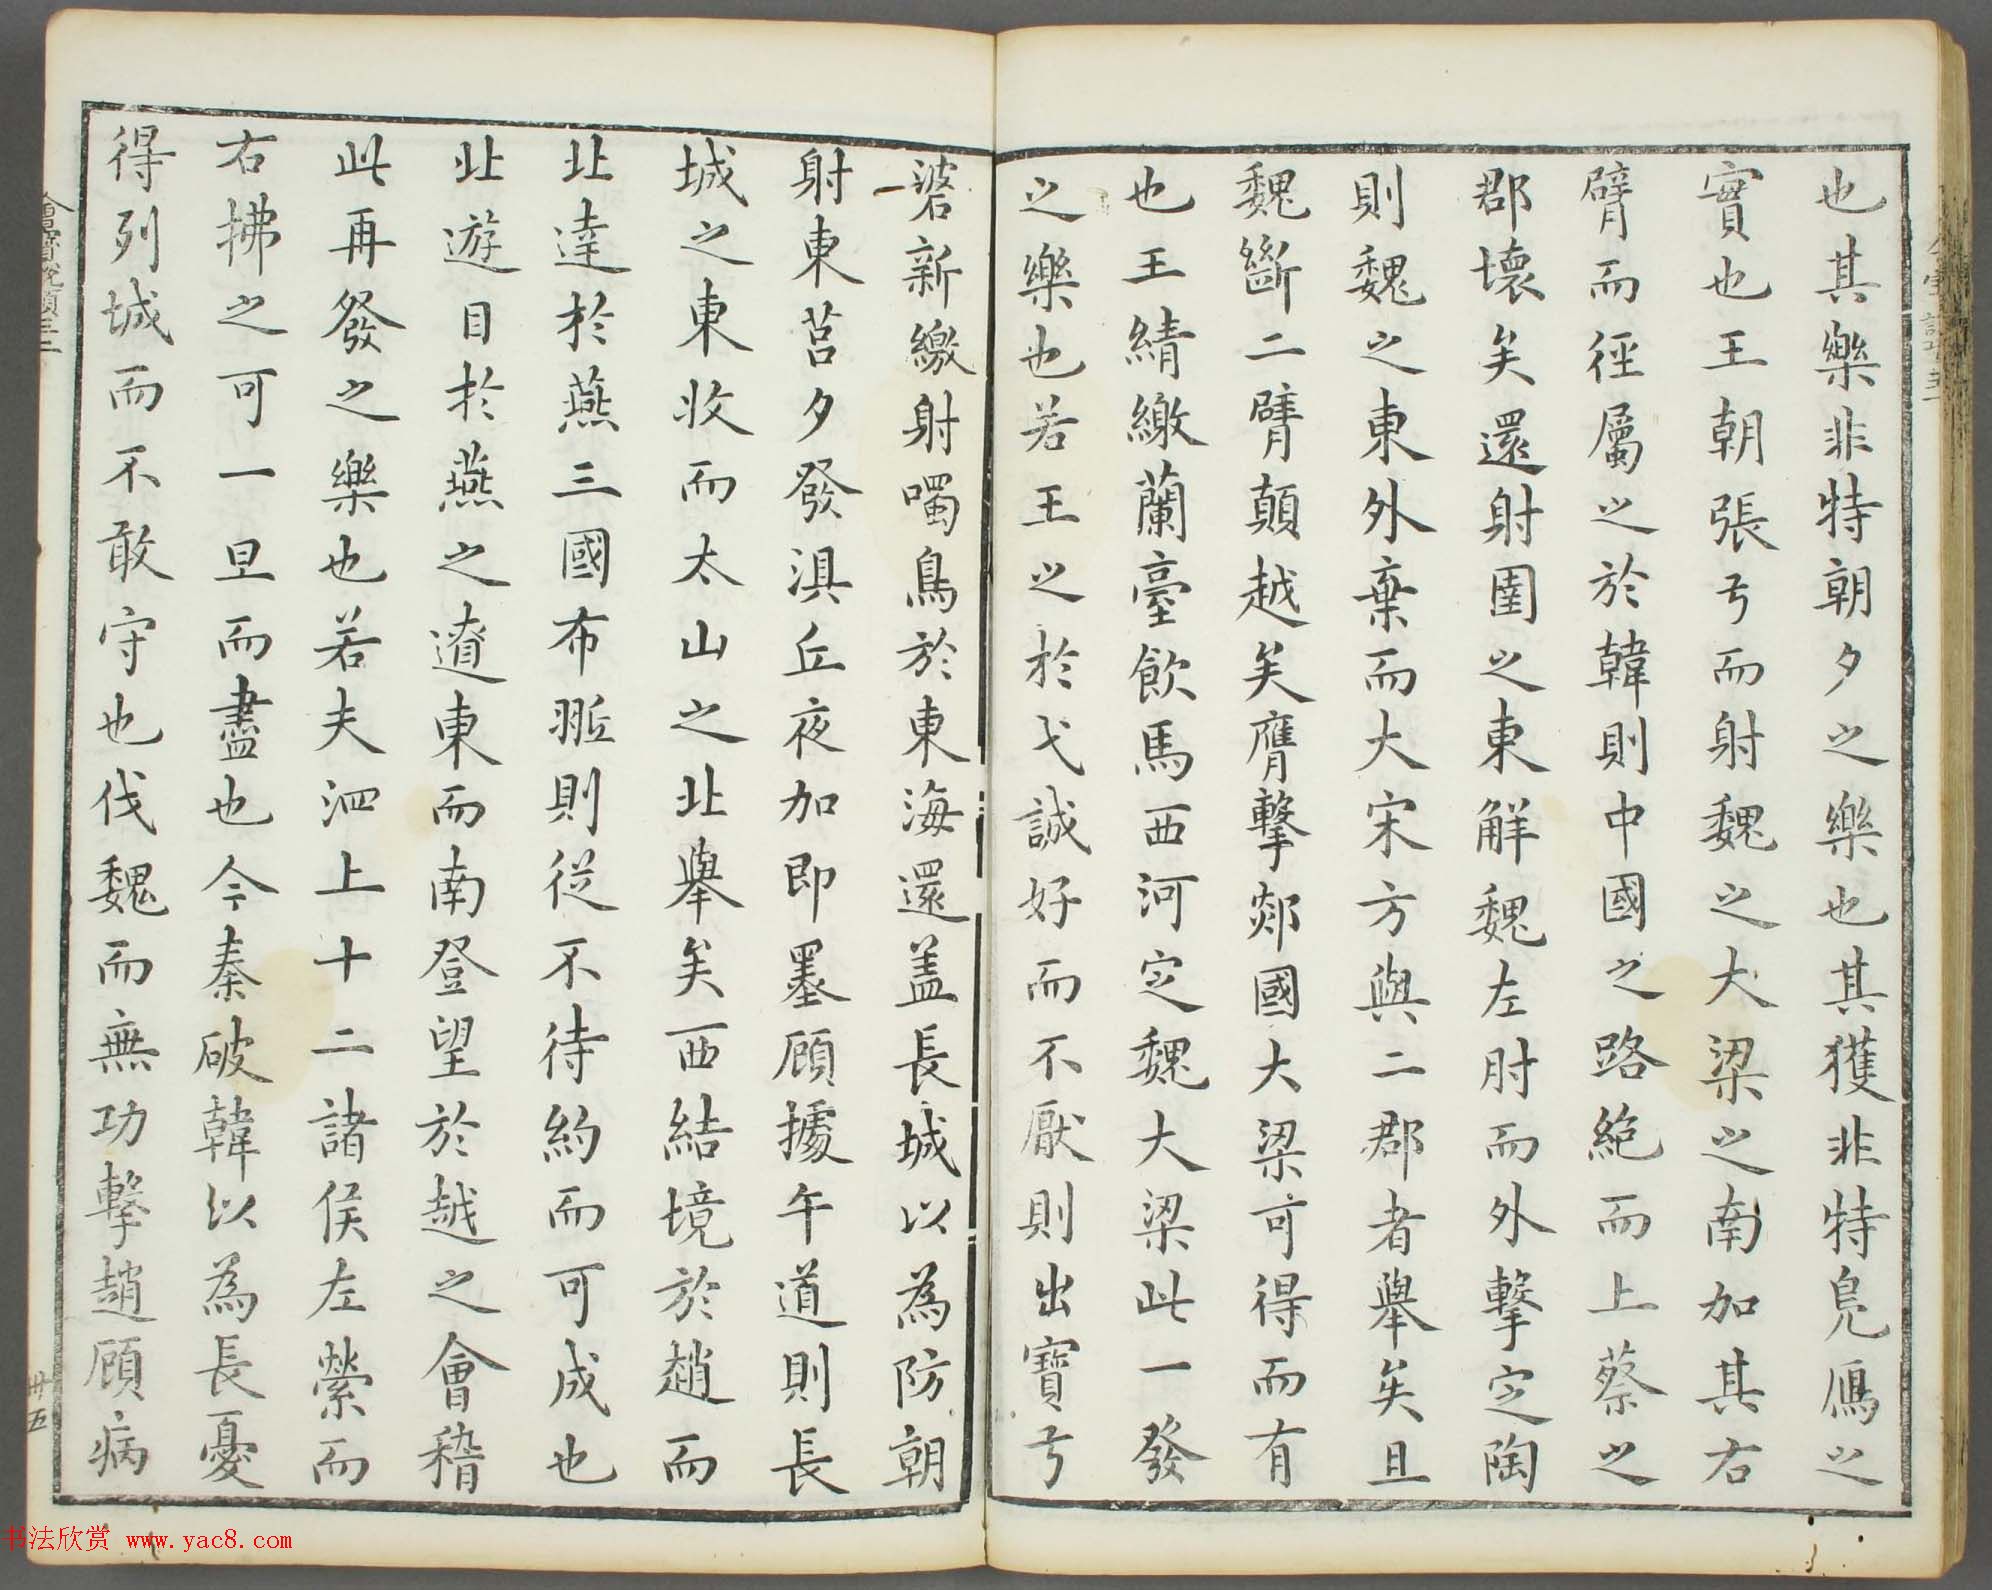 也其樂非特朝夕之樂也其獲非特鳧鴈之
實也王朝張弓而射魏之大梁之南加其右
臂而徑屬之於韓則中國之路絶而上蔡之
郡壞矣還射圉之東解魏左肘而外擊定陶
則魏之東外棄而大宋方與二郡者舉矣且
魏斷二臂顛越矣膺擊郯國大梁可得而有
也王綪繳蘭臺飲馬西河定魏大梁此一發
之樂也若王之於弋誠好而不厭則出寶弓
碆新繳射噣鳥於東海還盖長城以為防朝
射東莒夕發浿丘夜加即墨顧據午道則長
城之東收而太山之北舉矣西結境於趙而
北達於燕三國布翄則從不待約而可成也
北遊目於燕之遼東而南登望於越之會稽
此再發之樂也若夫泗上十二諸侯左縈而
右拂之可一旦而盡也今秦破韓以為長憂
得列城而不敢守也伐魏而無功擊趙顧病
卅五
书法欣赏 www.yac8.com